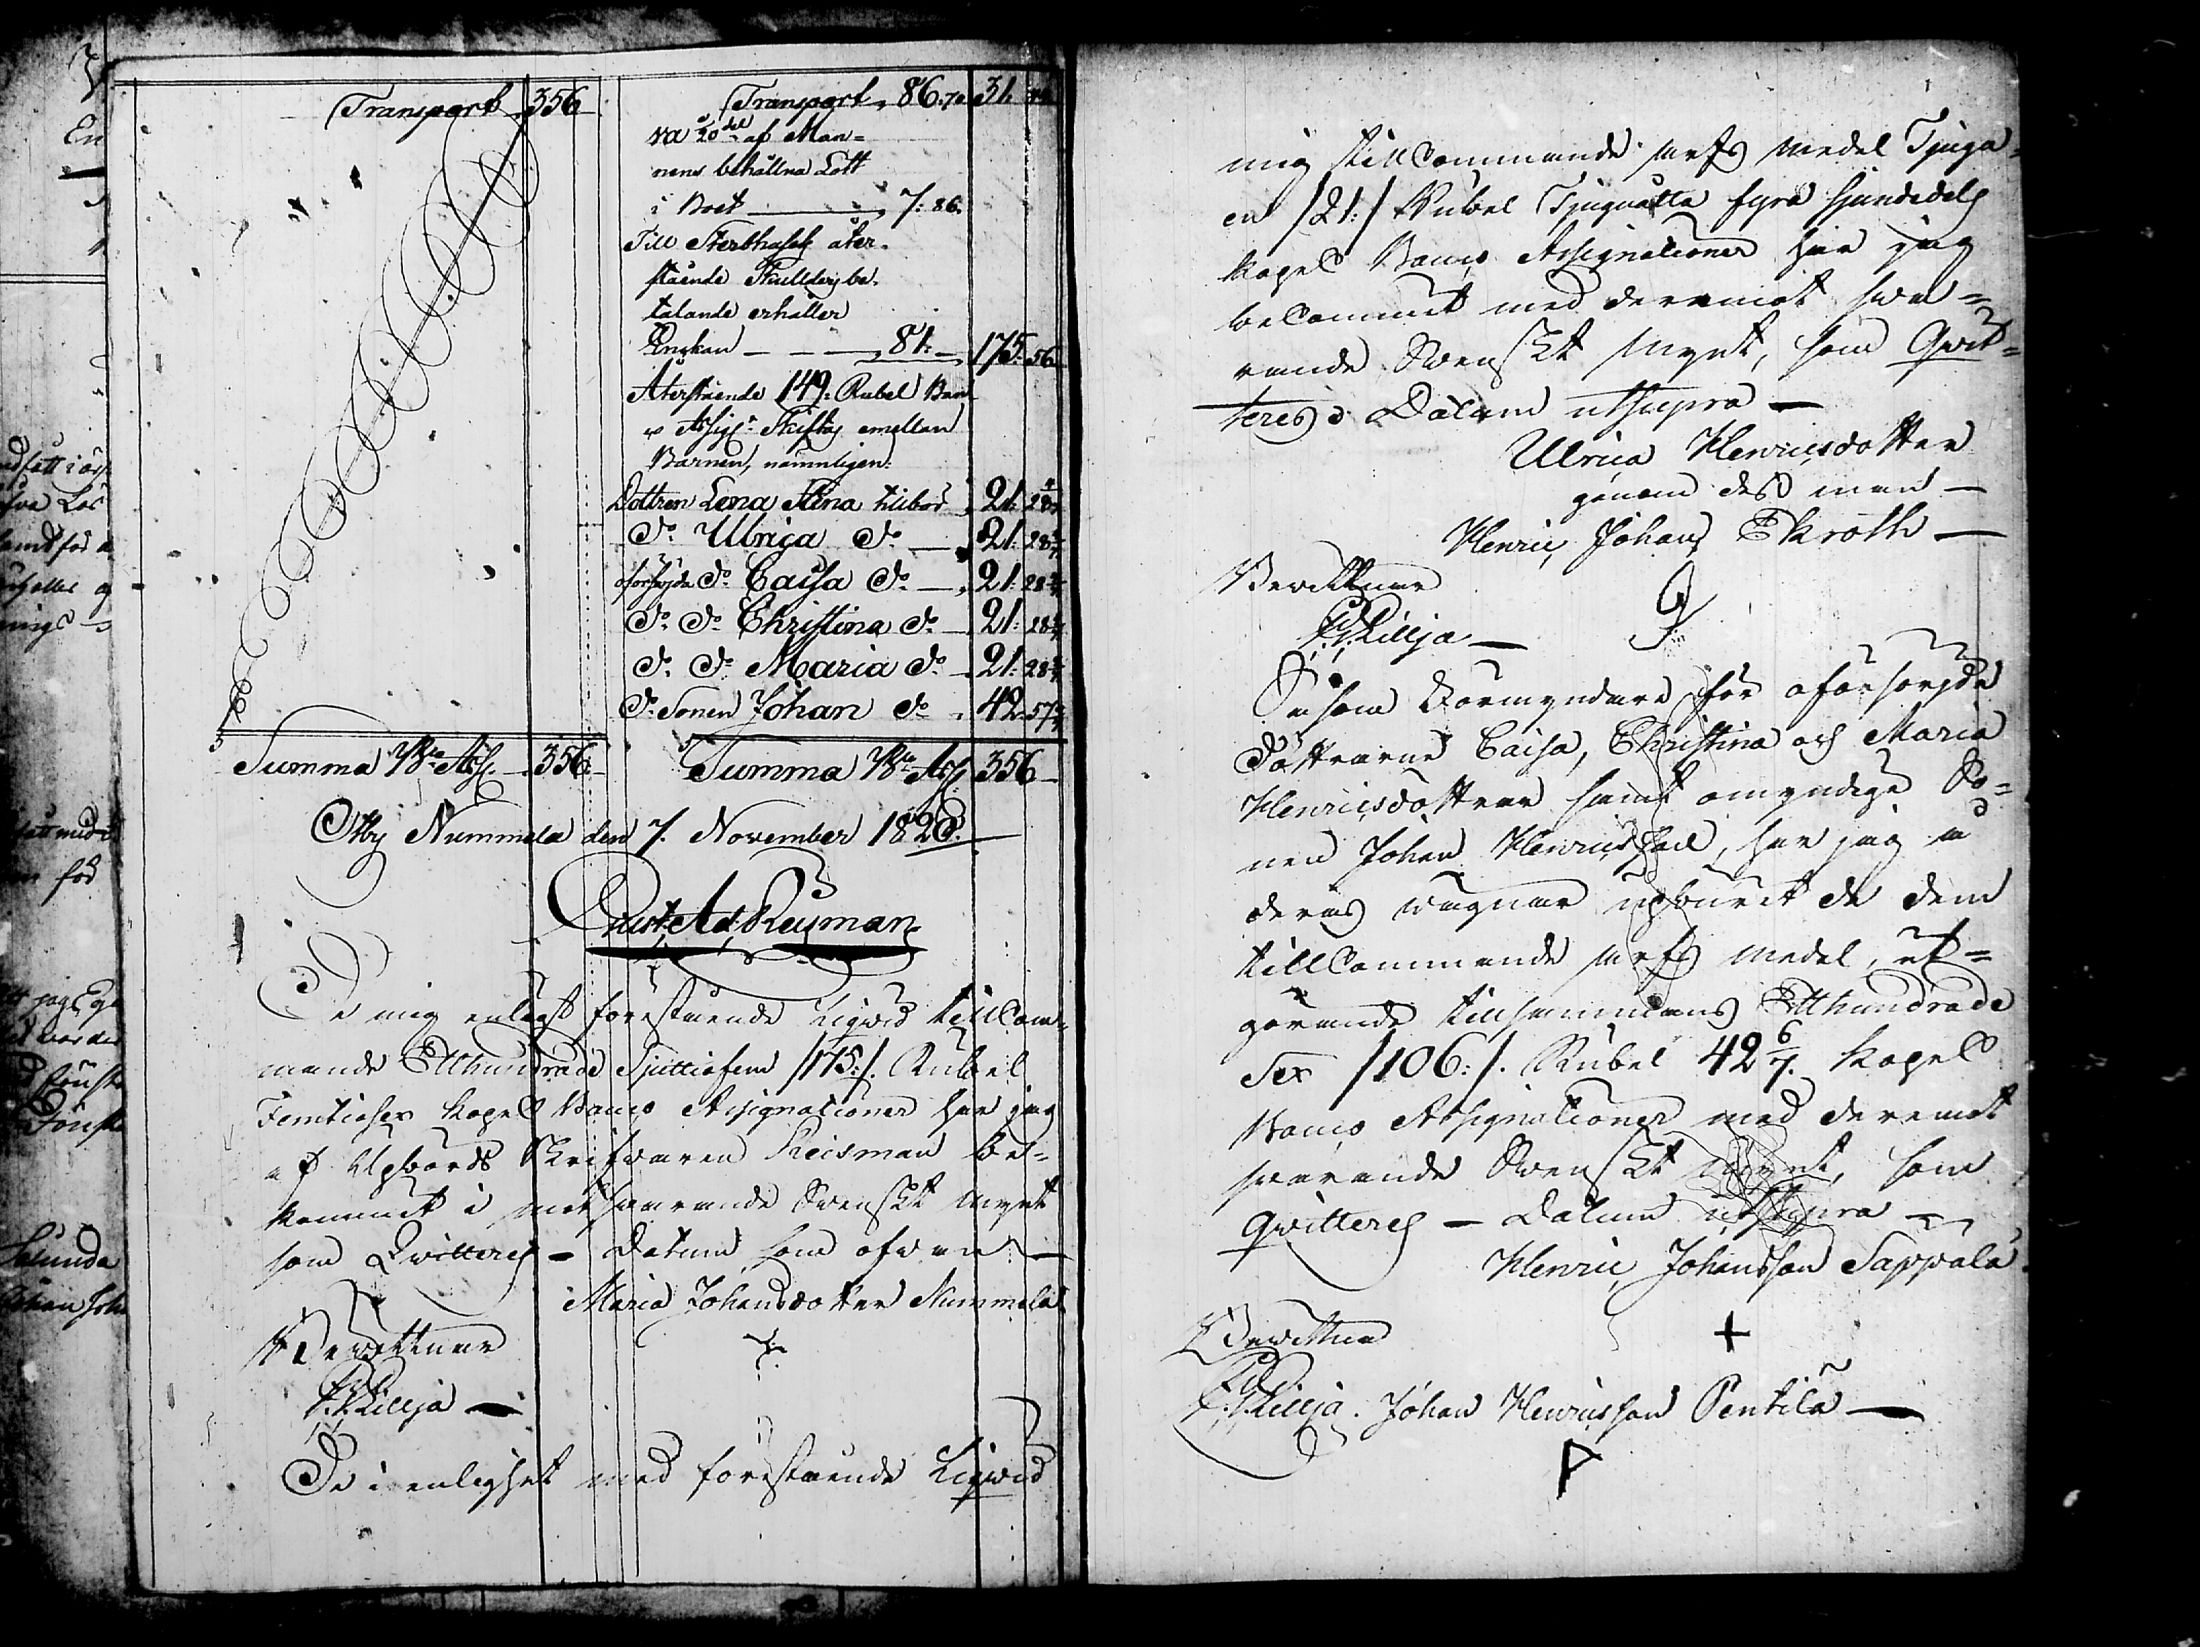 Transport 356
Transport, 86.70 31.
na 20del af Man=
nens behållna Lott
i Boet 7:86.
Till Sterbhusets åter-
stående Skulders be-
talande erhåller
Enkan 81:— 175:56
Återstående 149: Rubel Ban-
co Assigr Skiftas emellan
Barnen, nämnligen:
Dottren Lena Stina tillkod 21:28 4/7
do Ulrica do 21:28 4/7
oförsörjda do Caisa do 21:28 4/7
do do Christina do 21:28 4/7
do do Maria do 21:28 4/7
do Sonen Johan do 42.57 1/7
Summa Bco Ass. 356—
Summa Bco Ass. 356—
Otby Nummela den 7. November 1828.
Gust. Ad. Reisman
De mig enligt förestående Liqvid tillCom-
mande Etthundrade Sjuttiofem /175:/. Rubel
Femtiosex Kopek Banco Assignationer har jag
af Upbörds Skrifvaren Reisman be-
kommit i motsvarande Svenskt mynt
som Qvitteres — Datum som ofvan —
Maria Johansdotter Nummela
Bevittnar
Lillja —
De i enlighet med förestående Liqvid
mig tillCommande arfs medel Tjuga-
en /21:/ Rubel Tjuguåtta fyra sjundedels
Kopek Banco Assignationer har jag
beCommit med deremot sva=
rande Svenskt mynt, som Qvit=
teres Datum utsupra —
Ulrica Henricsdotter
genom des man —
Henric Johans Ekroth —
Bevittnar
Lillja —
Såsom Förmyndare för oförsörjde
döttrarne Caisa, Christina och Maria
Henricsdöttrar samt omyndige So=
nen Johan Henricsson, har jag å
deras vägnar upburit de dem
tillCommande arfs medel, ut=
görande tillsammans Etthundrade
Sex /106:/. Rubel 42 6/7. Kopek
Banco Assignationer med deremot
svarande Svenskt mynt, som
Qvitteres — Datum utsupra —
Henric Johansson Sappala
+
Bevittna
Lillja. Johan Henricsson Pentila —
P